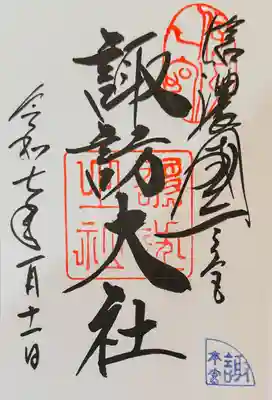 信濃國一之宮
諏訪大社
令和七年一月十一日
諏訪
本宮